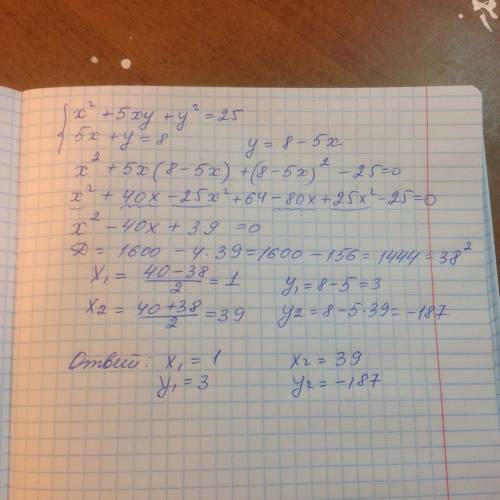 { x² + 5xy + y² = 25
5x + y = 8 y = 8 - 5x
x² + 5x(8 - 5x) + (8 - 5x)² - 25 = 0
x² + 40x - 25x² + 64 - 80x + 25x² - 25 = 0
x² - 40x + 39 = 0
D = 1600 - 4·39 = 1600 - 156 = 1444 = 38²
x₁ = (40-38)/2 = 1 y₁ = 8 - 5 = 3
x₂ = (40+38)/2 = 39 y₂ = 8 - 5·39 = -187
Ответ: x₁ = 1 x₂ = 39
y₁ = 3 y₂ = -187